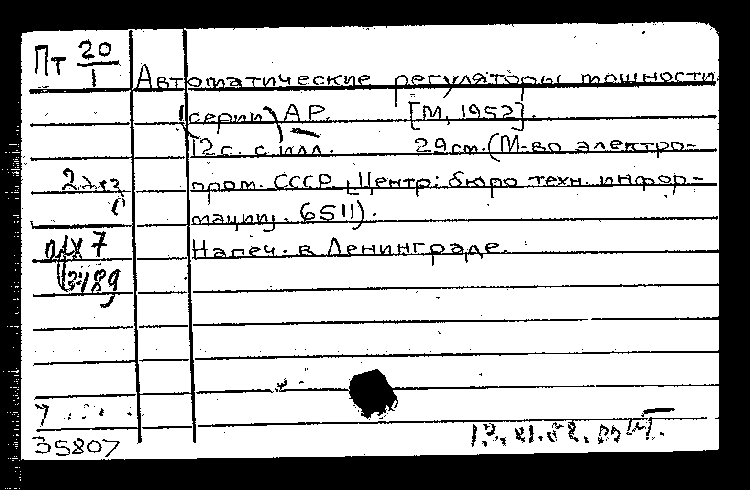 Пт 20/1
Автоматические регуляторы мощности
(серии) АР. [М, 1952].
12с. с илл. 29см. (М-во электро-
пром. СССР. Центр. бюро техн. инфор-
мации. 6511).
Напеч. в Ленинграде.
2 экз
7
3489
7
35807